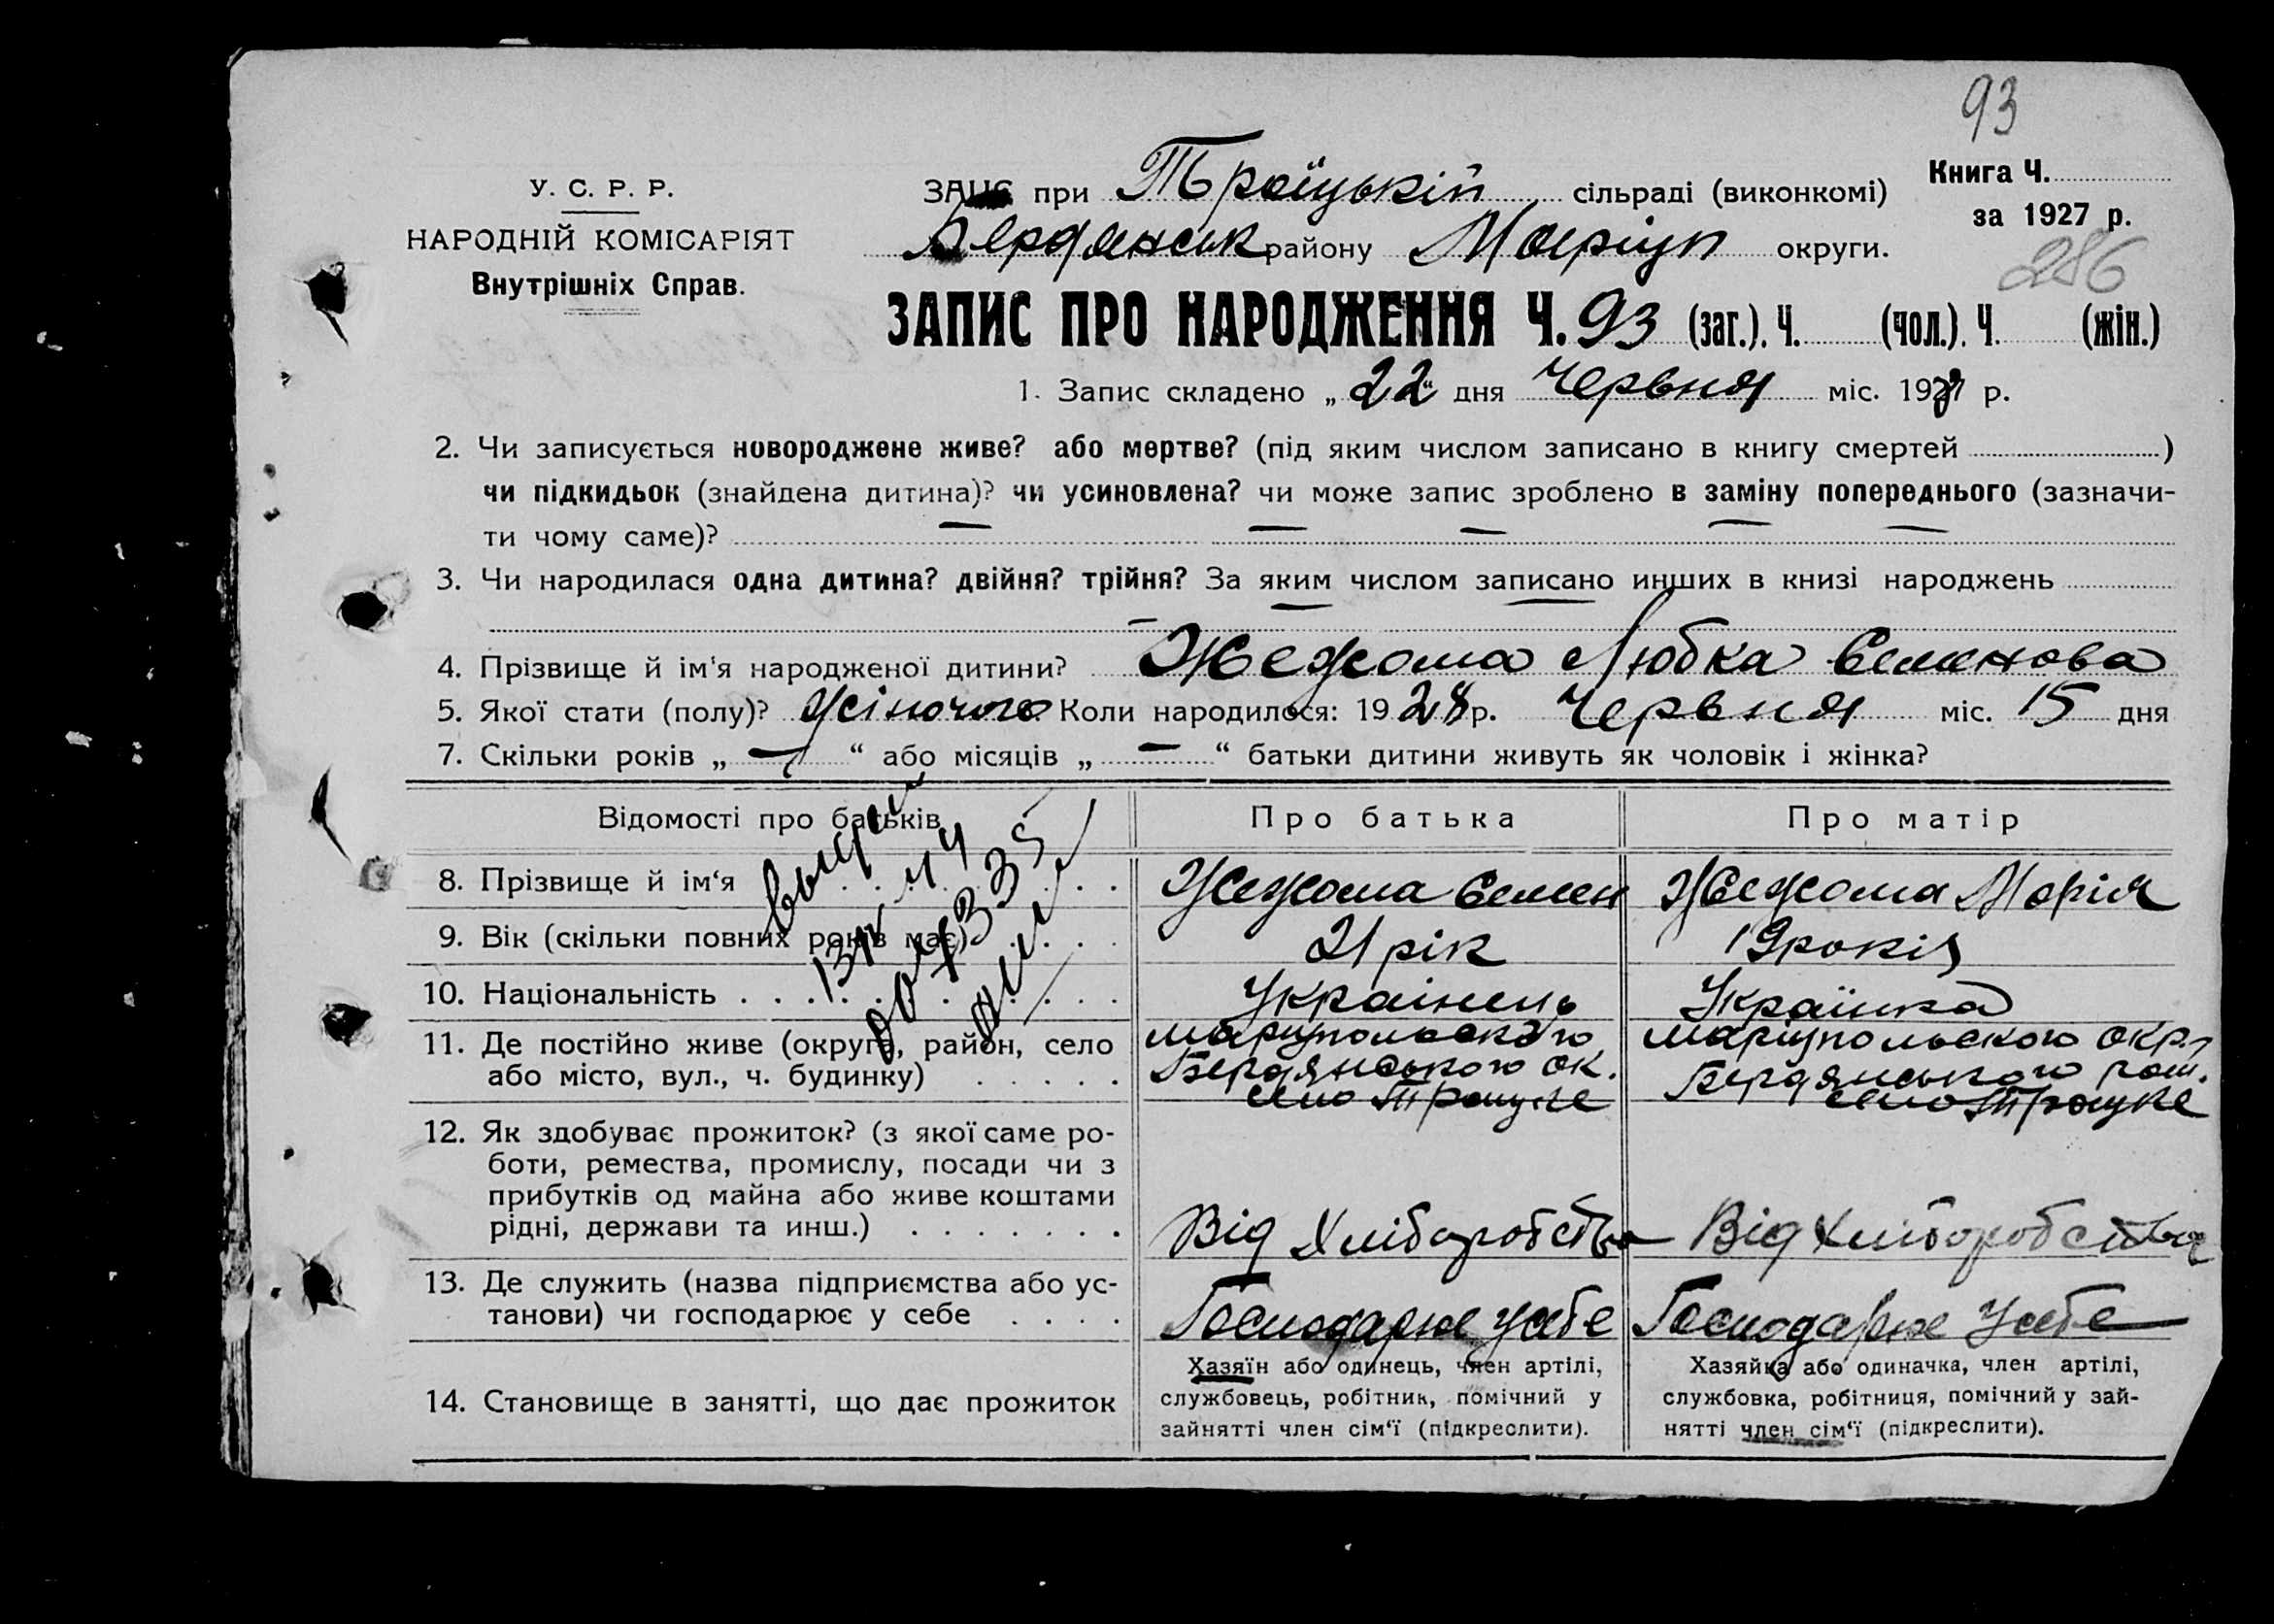 93
У. С. Р. Р.
НАРОДНІЙ КОМІСАРІЯТ
Внутрішніх Справ.
ЗАЦС при Троїцькій сільраді (виконкомі)
Бердянськ району Маріуп округи.
Книга Ч.
за 1927 р.
286
ЗАПИС ПРО НАРОДЖЕННЯ Ч. 93 (заг.). Ч. (чол.). Ч. (жін.)
1. Запис складено „22“ дня Червня міс. 1928 р.
2. Чи записується новороджене живе? або мертве? (під яким числом записано в книгу смертей )
чи підкидьок (знайдена дитина)? чи усиновлена? чи може запис зроблено в заміну попереднього (зазначи-
ти чому саме)? — — — — —
3. Чи народилася одна дитина? двійня? трійня? За яким числом записано инших в книзі народжень
4. Прізвище й ім‘я народженої дитини? Жежома Любка Семенова
5. Якої стати (полу)? жіночого Коли народилося: 1928 р. Червня міс. 15 дня
7. Скільки років „ — “ або місяців „ — “ батьки дитини живуть як чоловік і жінка?
Відомості про батьків Про батька Про матір
8. Прізвище й ім‘я Жежома Семен Жежома Марія
9. Вік (скільки повних років має) 21 рік 19 років
10. Національність Украінець Украінка
11. Де постійно живе (округа, район, село
або місто, вул., ч. будинку)
маріупольского
Бердянського ок.
село Троіцке
маріупольского окр.
Бердянського
село Троіцке
12. Як здобуває прожиток? (з якої саме ро-
боти, ремества, промислу, посади чи з
прибутків од майна або живе коштами
рідні, держави та инш.)
Від Хліборобства Від Хліборобства
13. Де служить (назва підприємства або ус-
танови) чи господарює у себе
Господарює у себе Господарює у себе
14. Становище в занятті, що дає прожиток
Хазяїн або одинець, член артілі,
службовець, робітник, помічний у
зайнятті член сім‘ї (підкреслити).
Хазяйка або одиначка, член артілі,
службовка, робітниця, помічний у зай-
нятті член сім‘ї (підкреслити).